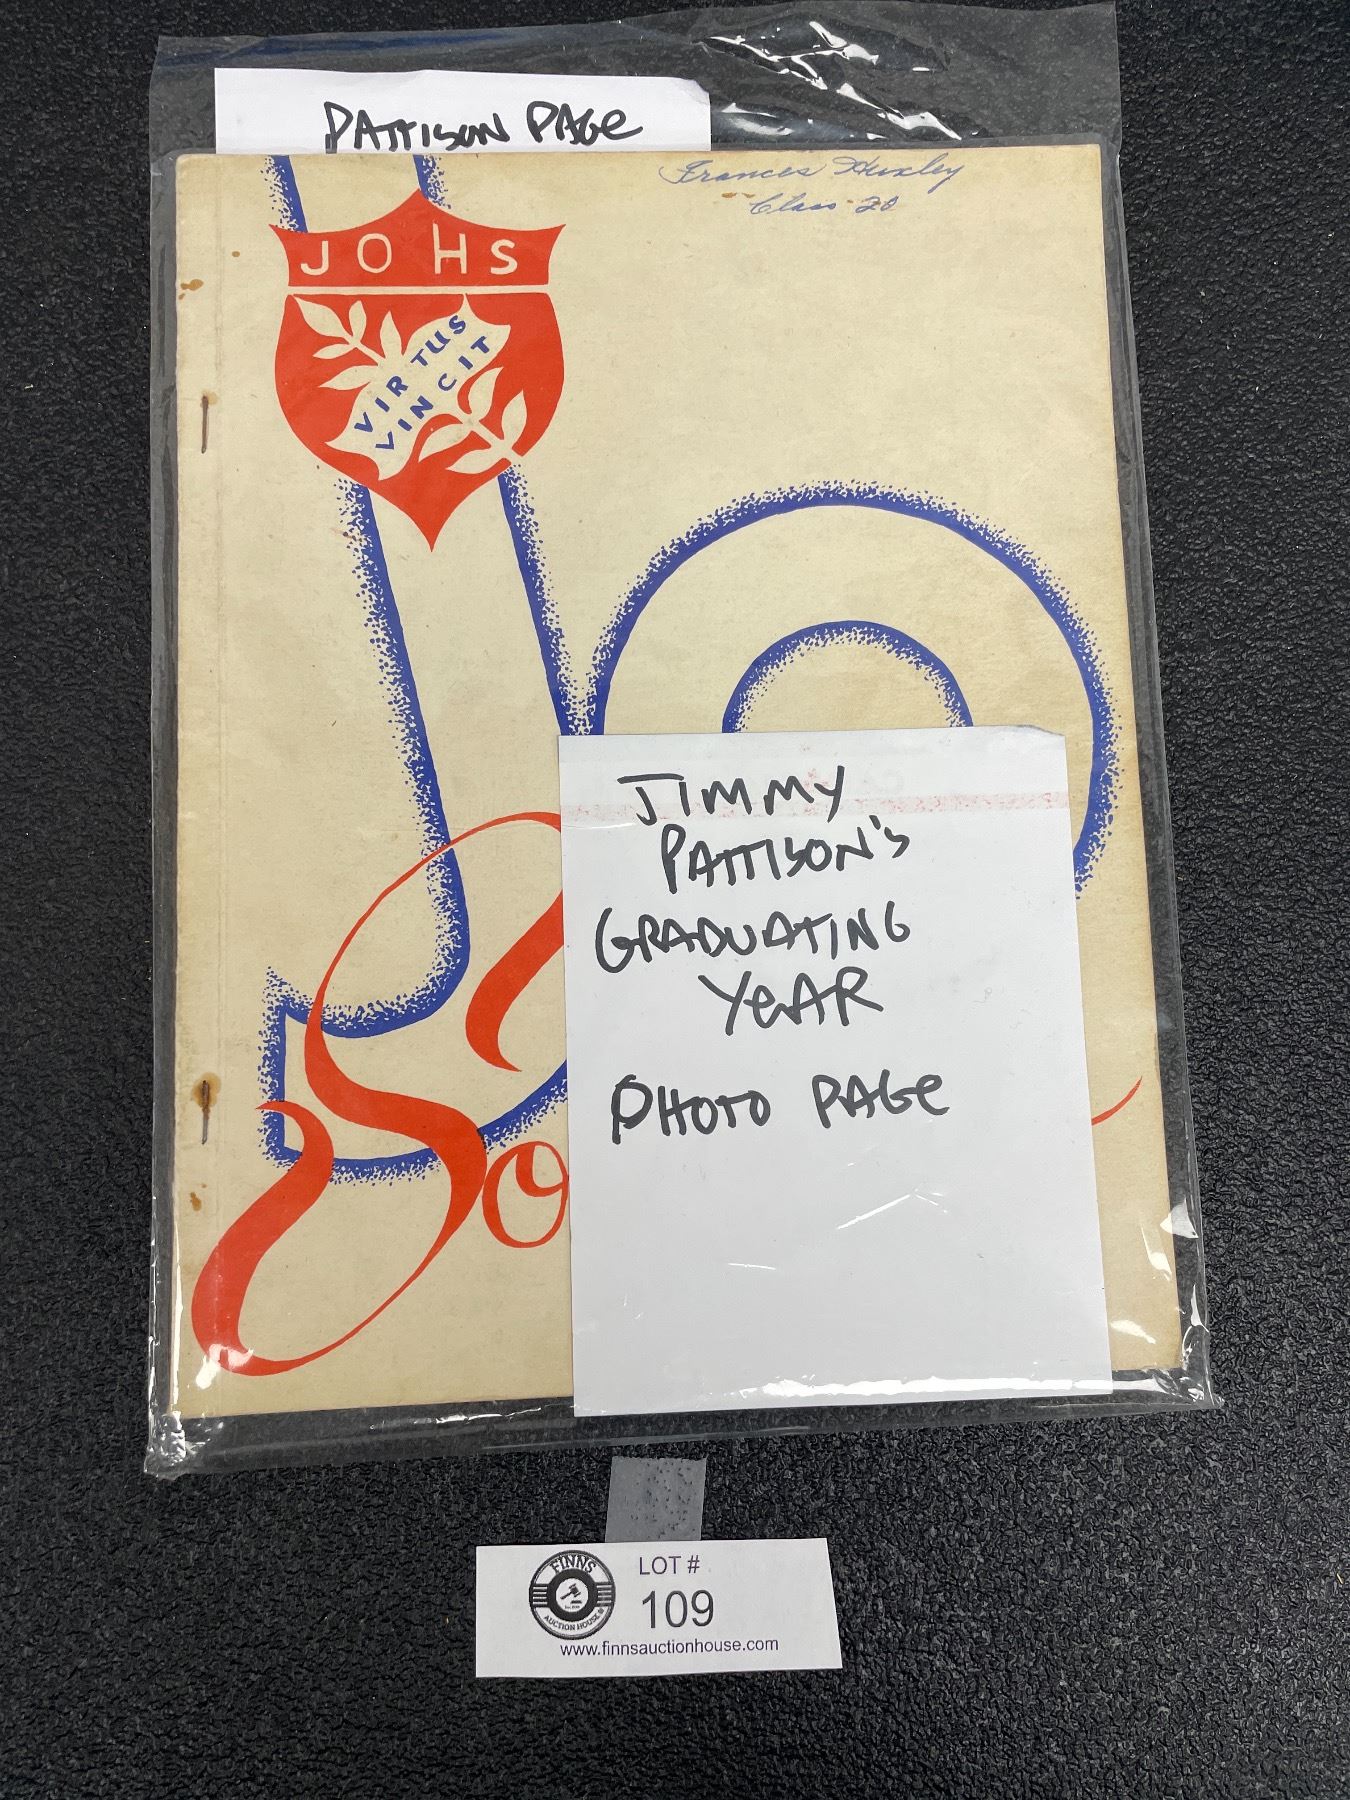 PATTISON PAGE
Frances Huxley
Class 20
JOHS
VIRTUS
VINCIT
So
JIMMY
PATTISON'S
GRADUATING
YEAR
PHOTO PAGE
FINNS
AUCTION HOUSE
LOT #
109
www.finnsauctionhouse.com